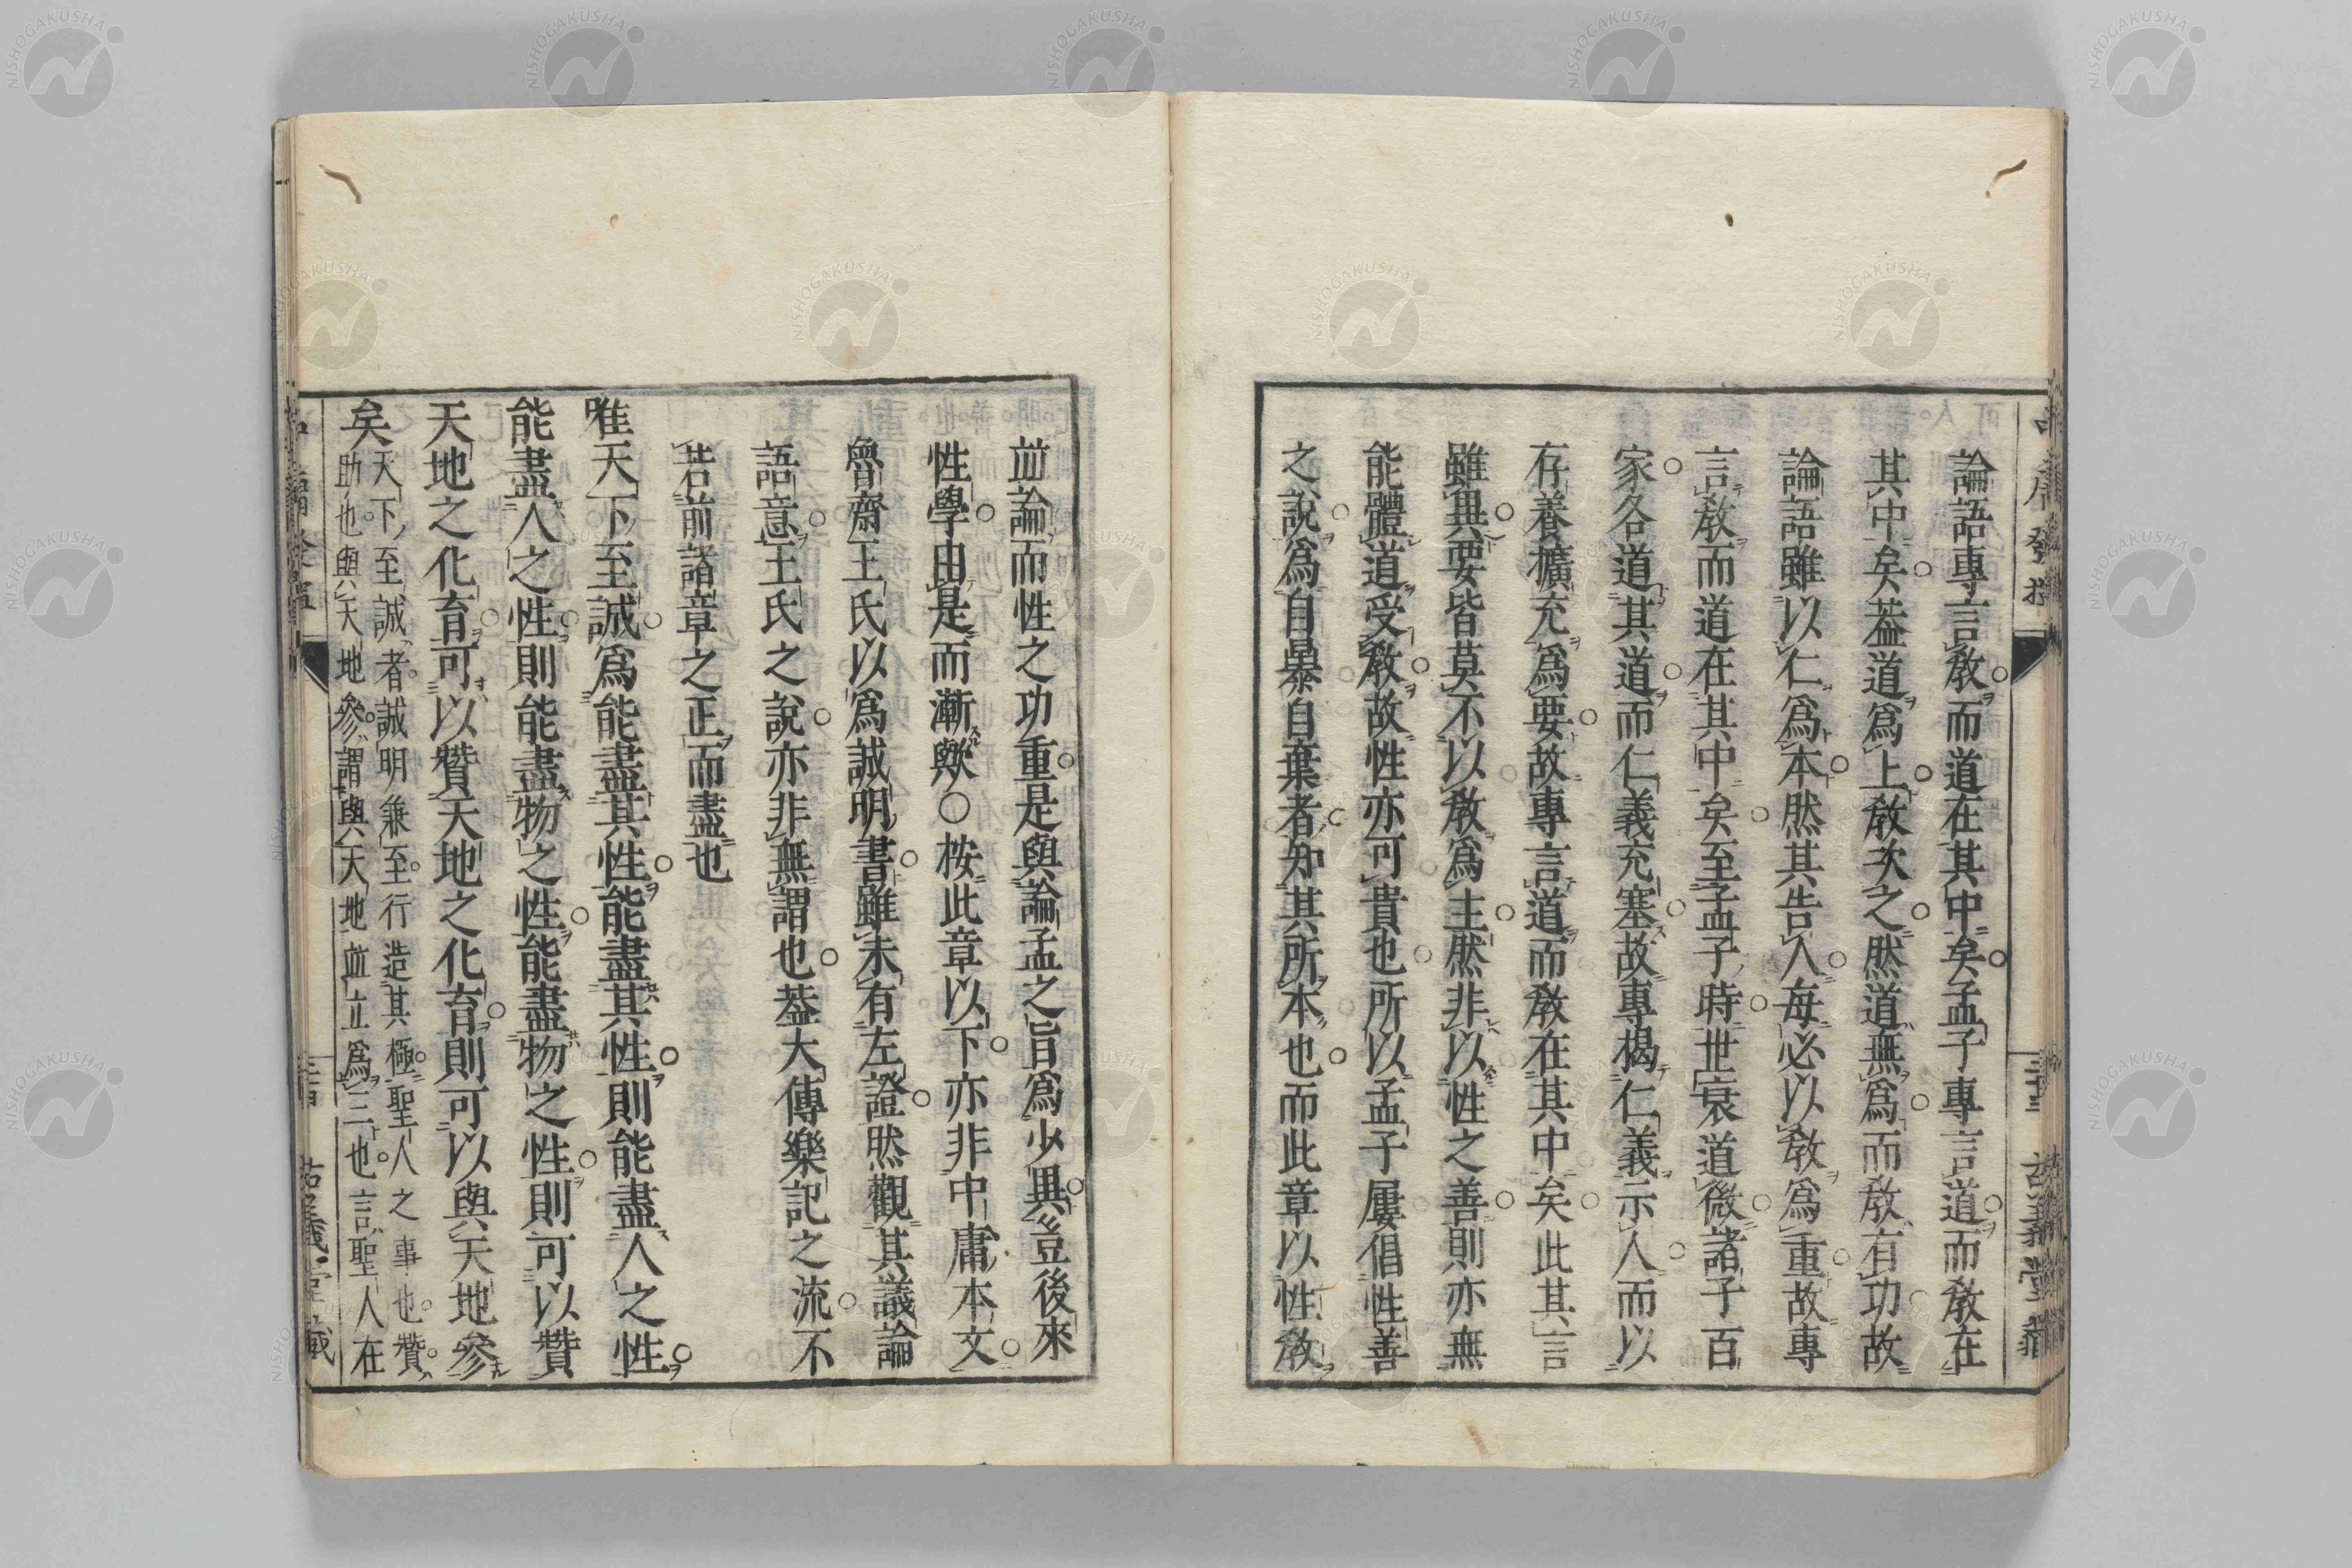 論語專言敎而道在其中矣孟子專言道而敎在
其中矣葢道爲上敎次之然道無爲而敎有功故
論語雖以仁爲本然其告人每必以敎爲重故專
言敎而道在其中矣至孟子時世衰道微諸子百
家各道其道而仁義充塞故專揭仁義示人而以
存養擴充爲要故專言道而敎在其中矣此其言
雖異要皆莫不以敎爲主然非以性之善則亦無
能體道受敎故性亦可貴也所以孟子屢倡性善
之說爲自暴自棄者知其所本也而此章以性敎
並論而性之功重是與論孟之旨爲少異豈後來
性學由是而漸歟○桉此章以下亦非中庸本文
魯齋王氏以爲誠明書雖未有左證然觀其議論
語意王氏之說亦非無謂也葢大傳樂記之流不
若前諸章之正而盡也
唯天下至誠爲能盡其性能盡其性則能盡人之性
能盡人之性則能盡物之性能盡物之性則可以贊
天地之化育可以贊天地之化育則可以與天地參
矣天下至誠者誠明兼至行造其極聖人之事也贊
助也與天地參謂與天地並立爲三也言聖人在